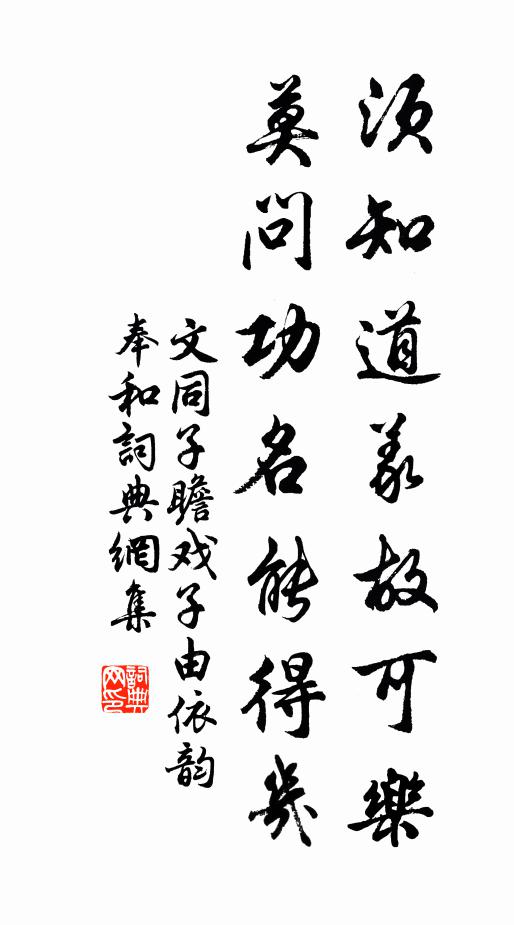 须知道義故可樂
莫問功名能得幾
文同子瞻戏子由依韵
奉和詞典網集
詞典網印